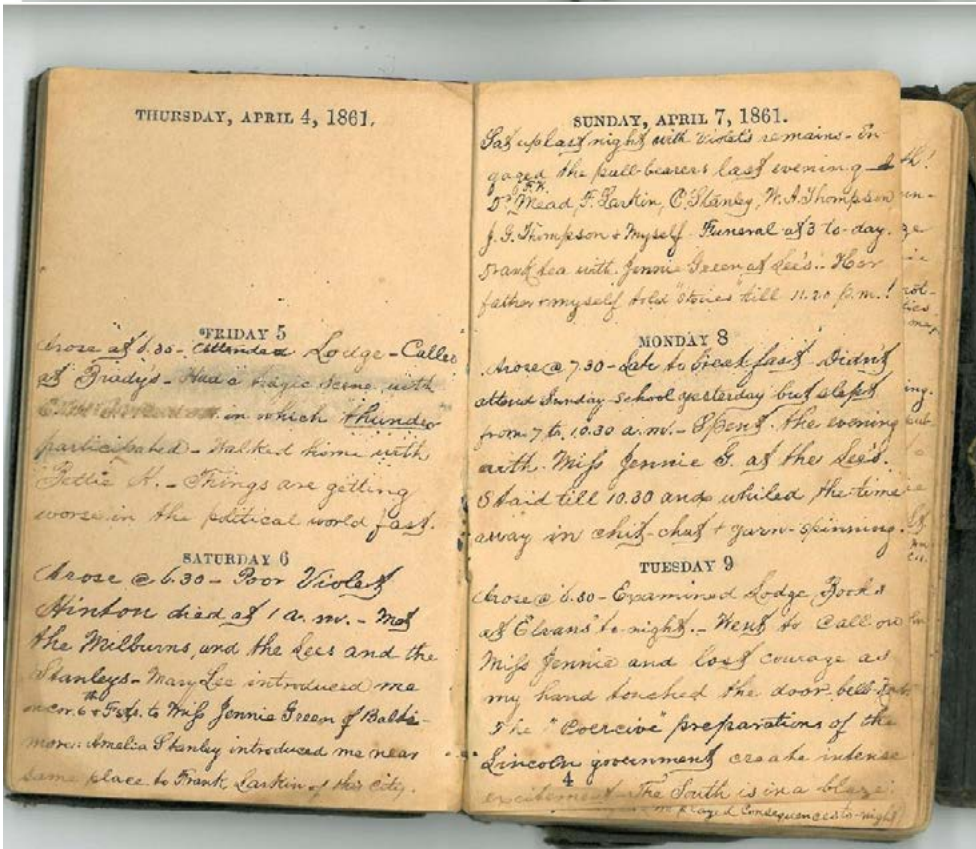 THURSDAY, APRIL 4, 1861.
FRIDAY 5
Arose at 6.30 - Attended Lodge - Called
at Brady's - Had a tragic scene with
in which thunder
participated - Walked home with
Bettie K. - Things are getting
worse in the political world fast.
SATURDAY 6
Arose @ 6.30 - Poor Violet
Hinton died at 1 a.m. - Met
the Milburns, and the Lees and the
Stanleys - Mary Lee introduced me
on cor. 6th & F sts. to Miss Jennie Green of Balti-
more: Amelia Stanley introduced me near
same place to Frank Larkin of this City.
SUNDAY, APRIL 7, 1861.
Sat up last night with Violet's remains - En-
gaged the pall-bearers last evening -
Dr. F.W. Mead, F. Larkin, C. Stanley, W. A. Thompson
J. G. Thompson & Myself - Funeral at 3 to-day.
Drank tea with Jennie Green at Lee's. Her
father & myself told "stories" till 11.20 p.m.!
MONDAY 8
Arose @ 7.30 - Late to breakfast. Didn't
attend Sunday-school yesterday but slept
from 7 to 10.30 a.m. - Spent the evening
with Miss Jennie G. at the Lee's.
Staid till 10.30 and whiled the time
away in chit-chat & yarn-spinning.
TUESDAY 9
Arose @ 6.30 - Examined Lodge Books
at Elvans' to-night. - Went to call on
Miss Jennie and lost courage as
my hand touched the door bell-
The "Coercive" preparations of the
Lincoln government create intense
excitement - The South is in a blaze.
played Consequences to-night
4